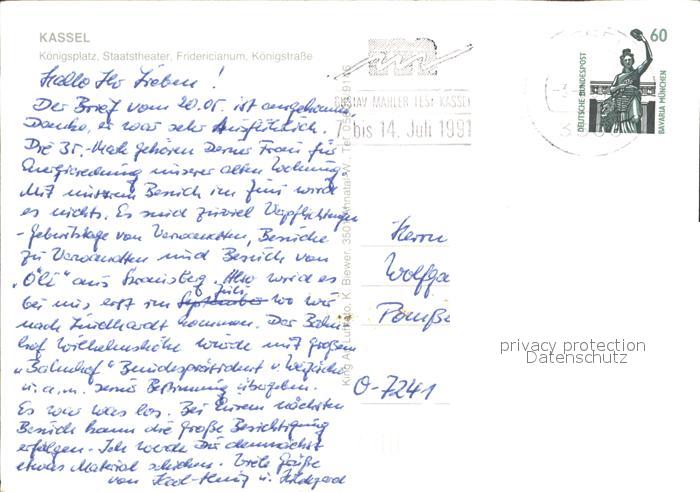 KASSEL
Königsplatz, Staatstheater, Fridericianum, Königstraße
Hallo Ihr Lieben!
Der Brief vom 20.05. ist angekommen,
Danke, es war sehr Ausführlich.
Die 35,-Mark gehören Deiner Frau für
Energierechnung unserer alten Wohnung.
Mit unserem Besuch im Juni wird
es nichts. Es sind zuviel Verpflichtungen
- Geburtstage von Verwandten, Besuche
zu Verwandten und Besuch von
"Öli" aus Strausberg. Also wird es
bei uns erst im September Juli, wo wir
nach Lindhardt kommen. Der Bahn-
hof Wilhelmshöhe wurde mit großem
"Bahnhof" Bundespräsident v. Weizsäcker
u.a.m. seine Bestimmung übergeben.
Es war was los. Bei Eurem nächsten
Besuch kann die große Besichtigung
erfolgen. Ich werde Dir demnächst
etwas Material schicken. Viele Grüße
von Karl-Heinz u. Hildegard
GUSTAV MAHLER FEST KASSEL
bis 14. Juli 1991
60
DEUTSCHE BUNDESPOST
BAVARIA MÜNCHEN
Herrn
Wolfga
O-7241
privacy protection
Datenschutz